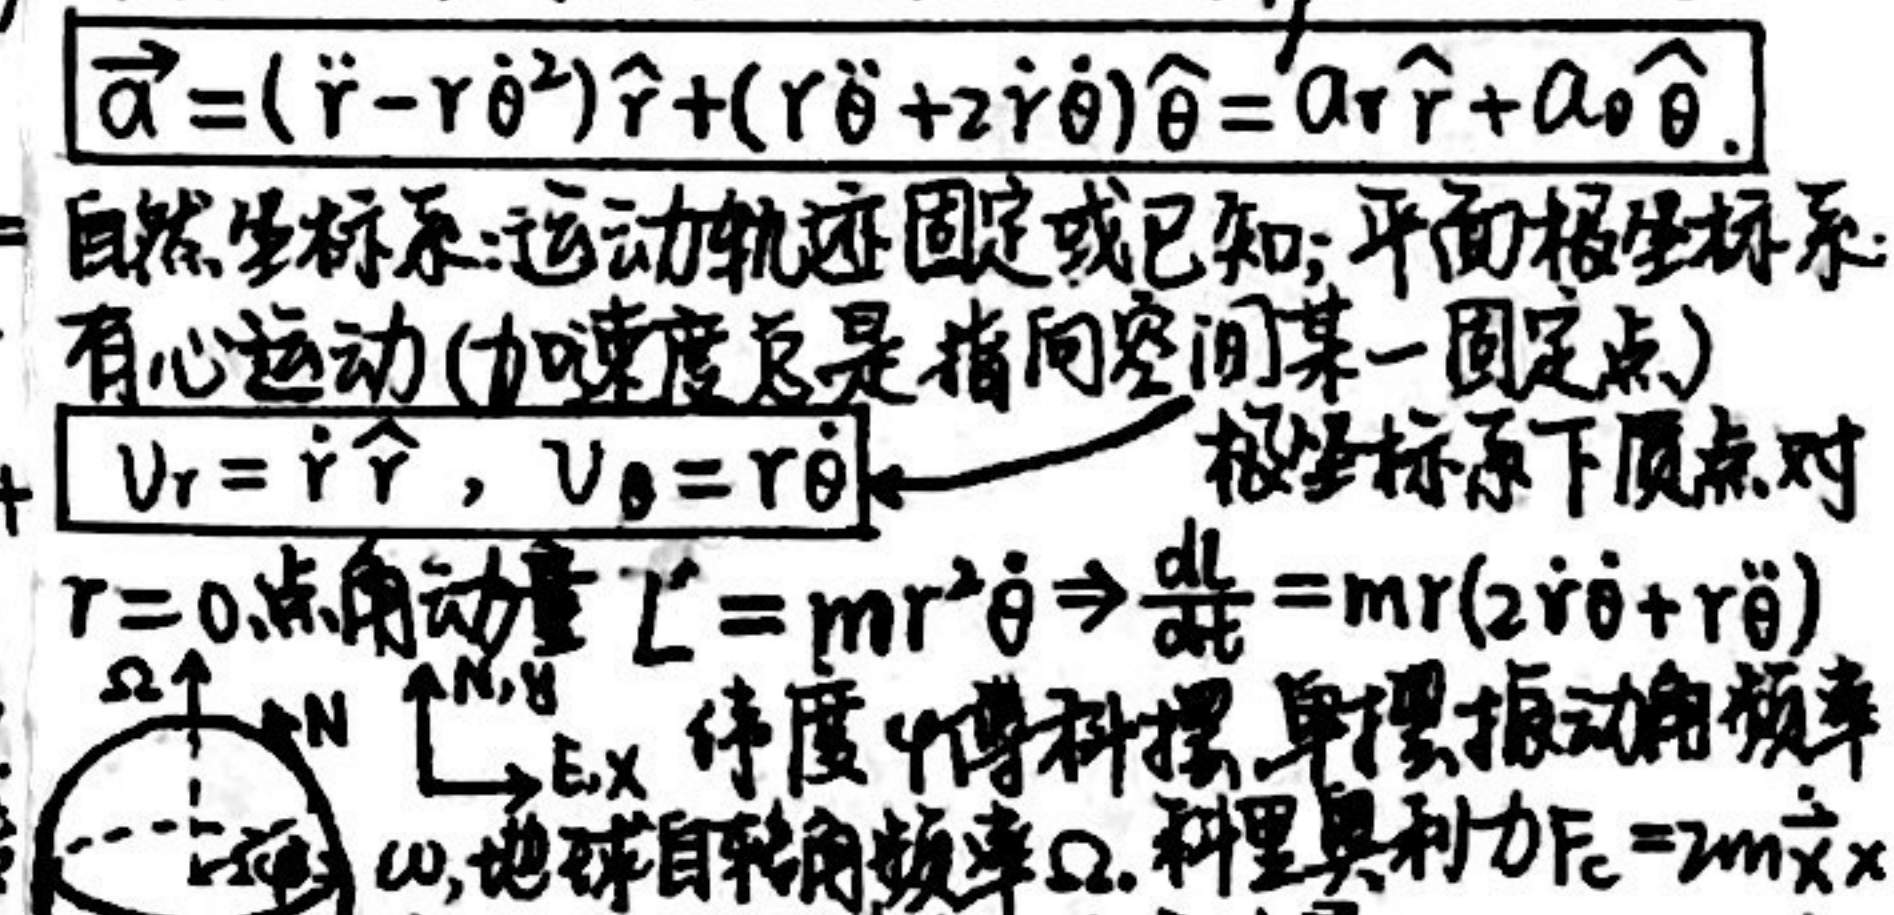 a⃗ = (r̈ - rθ̇²) r̂ + (rθ̈ + 2ṙθ̇) θ̂ = aᵣ r̂ + a_θ θ̂.
自然坐标系:运动轨迹固定或已知; 平面极坐标系:
有心运动(加速度总是指向空间某一固定点)
υᵣ = ṙ r̂, υ_θ = rθ̇
极坐标系下质点对
r = 0点角动量 L = mr²θ̇ ⇒ dL/dt = mr(2ṙθ̇ + rθ̈)
Ω N N,y E,x
纬度φ傅科摆,单摆振动角频率
ω,地球自转角频率Ω. 科里奥利力F_c = 2m ẋ⃗ ×